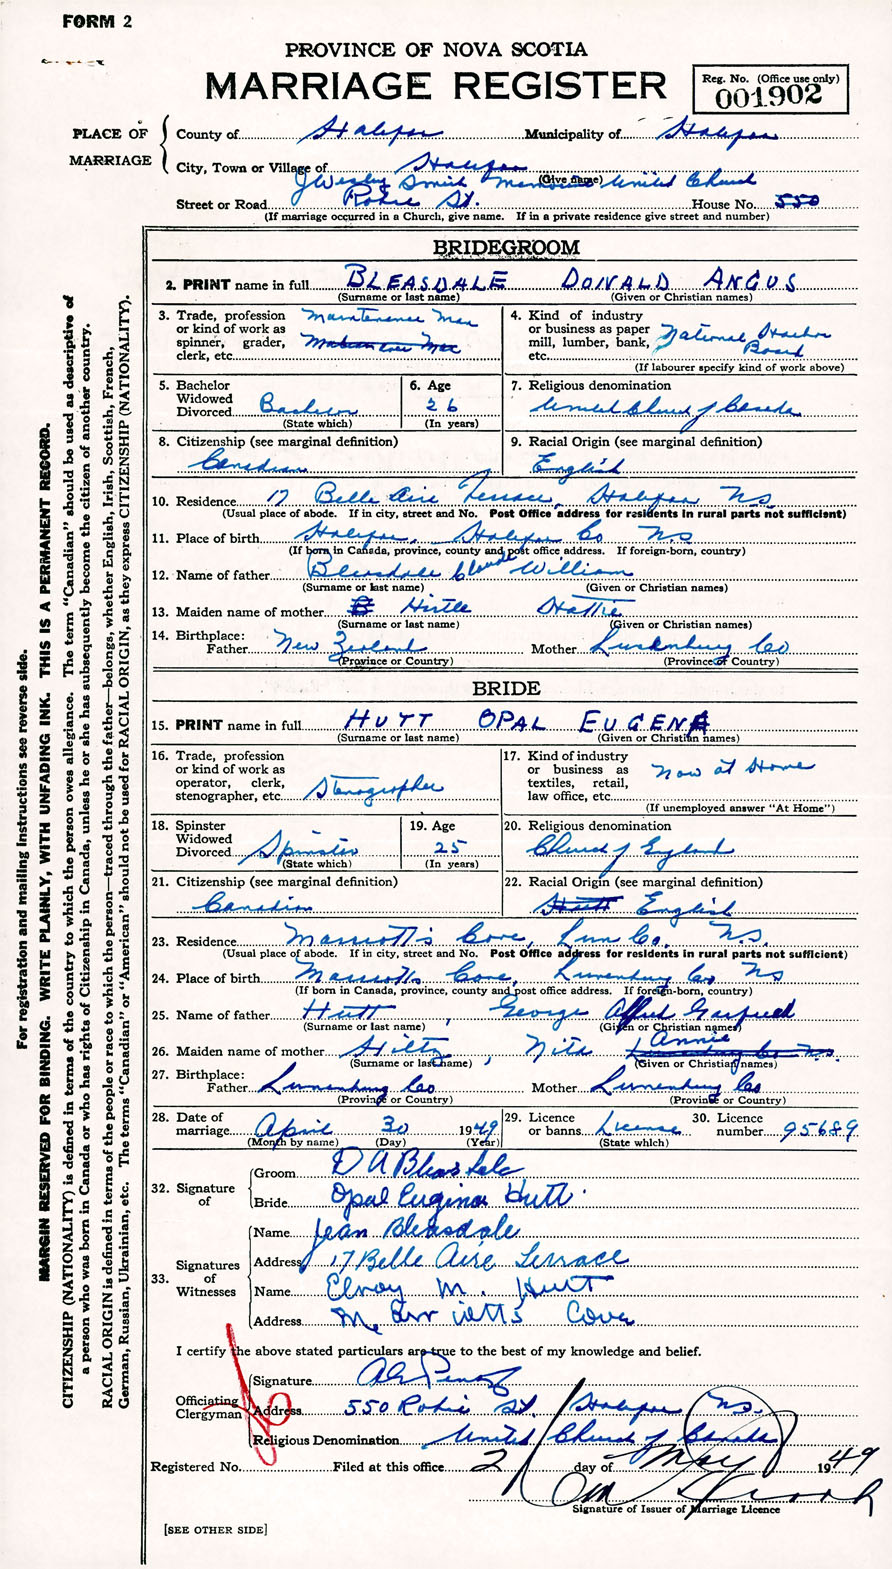 FORM 2
PROVINCE OF NOVA SCOTIA
MARRIAGE REGISTER
Reg. No. (Office use only)
001902
PLACE OF MARRIAGE
County of Halifax Municipality of Halifax
City, Town or Village of Halifax
(Give name)
J Wesley Smith Memorial United Church
Street or Road Robie St. House No. 550
(If marriage occurred in a Church, give name. If in a private residence give street and number)
BRIDEGROOM
2. PRINT name in full BLEASDALE DONALD ANGUS
(Surname or last name) (Given or Christian names)
3. Trade, profession or kind of work as spinner, grader, clerk, etc. Maintenance Man
4. Kind of industry or business as paper mill, lumber, bank, etc. National Harbor Board
(If labourer specify kind of work above)
5. Bachelor Widowed Divorced Bachelor
(State which)
6. Age 26
(In years)
7. Religious denomination United Church of Canada
8. Citizenship (see marginal definition) Canadian
9. Racial Origin (see marginal definition) English
10. Residence 17 Belle Aire Terrace, Halifax NS
(Usual place of abode. If in city, street and No. Post Office address for residents in rural parts not sufficient)
11. Place of birth Halifax, Halifax Co NS
(If born in Canada, province, county and post office address. If foreign-born, country)
12. Name of father Bleasdale Claude William
(Surname or last name) (Given or Christian names)
13. Maiden name of mother Hirtle Hattie
(Surname or last name) (Given or Christian names)
14. Birthplace:
Father New Zealand Mother Lunenburg Co
(Province or Country) (Province or Country)
BRIDE
15. PRINT name in full HUTT OPAL EUGENA
(Surname or last name) (Given or Christian names)
16. Trade, profession or kind of work as operator, clerk, stenographer, etc. Stenographer
17. Kind of industry or business as textiles, retail, law office, etc. Now at Home
(If unemployed answer "At Home")
18. Spinster Widowed Divorced Spinster
(State which)
19. Age 25
(In years)
20. Religious denomination Church of England
21. Citizenship (see marginal definition) Canadian
22. Racial Origin (see marginal definition) English
23. Residence Marriott's Cove, Lun Co. N.S.
(Usual place of abode. If in city, street and No. Post Office address for residents in rural parts not sufficient)
24. Place of birth Marriotts Cove, Lunenburg Co NS
(If born in Canada, province, county and post office address. If foreign-born, country)
25. Name of father Hutt, George Alfred Garfield
(Surname or last name) (Given or Christian names)
26. Maiden name of mother Hiltz, Nita Annie
(Surname or last name) (Given or Christian names)
27. Birthplace:
Father Lunenburg Co Mother Lunenburg Co
(Province or Country) (Province or Country)
28. Date of marriage April 30 1949
(Month by name) (Day) (Year)
29. Licence or banns License
(State which)
30. Licence number 95689
32. Signature of
Groom D A Bleasdale
Bride Opal Eugina Hutt
33. Signatures of Witnesses
Name Jean Bleasdale
Address 17 Belle Aire Terrace
Name Elroy M. Hutt
Address Marriotts Cove
I certify the above stated particulars are true to the best of my knowledge and belief.
Officiating Clergyman
Signature
Address 550 Robie St. Halifax NS.
Religious Denomination United Church of Canada
Registered No. Filed at this office 2 day of May 1949
Signature of Issuer of Marriage Licence
[SEE OTHER SIDE]
For registration and mailing instructions see reverse side.
MARGIN RESERVED FOR BINDING. WRITE PLAINLY, WITH UNFADING INK. THIS IS A PERMANENT RECORD.
CITIZENSHIP (NATIONALITY) is defined in terms of the country to which the person owes allegiance. The term "Canadian" should be used as descriptive of
a person who was born in Canada or who has rights of Citizenship in Canada, unless he or she has subsequently become the citizen of another country.
RACIAL ORIGIN is defined in terms of the people or race to which the person—traced through the father—belongs, whether English, Irish, Scottish, French,
German, Russian, Ukrainian, etc. The terms "Canadian" or "American" should not be used for RACIAL ORIGIN, as they express CITIZENSHIP (NATIONALITY).